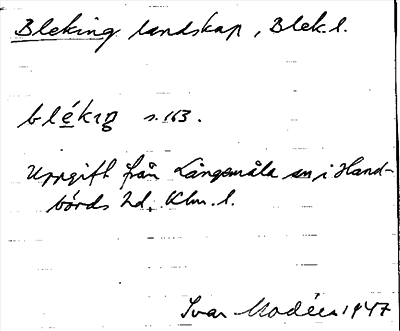 Bleking landskap, Blek. l.
blékıŋ s. 163.
Uppgift från Långemåla sn i Hand-
börds hd, Klm. l.
Ivar Modéer 1947